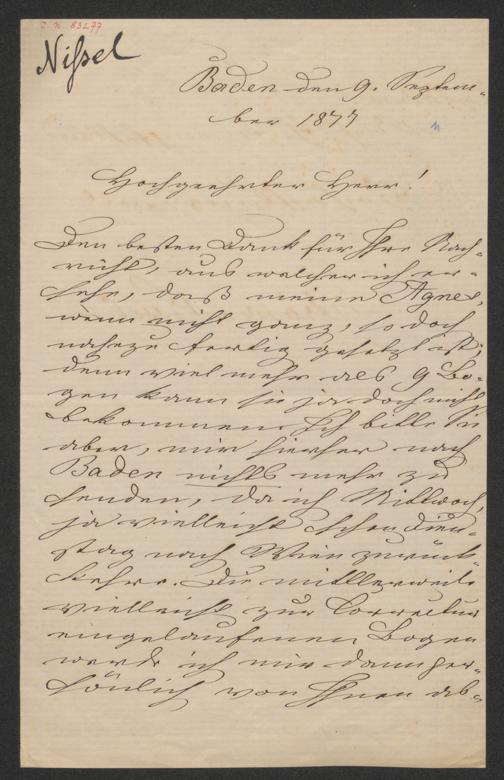 J. N. 83277
Nissel
Baden den 9. Septem-
ber 1877
Hochgeehrter Herr!
Den besten Dank für Ihre Nach-
richt, aus welcher ich er-
sehe, daß meine Agnes,
wenn nicht ganz, so doch
nahezu fertig gesetzt ist,
denn viel mehr als 9 Bo-
gen kann sie ja doch nicht
bekommen. Ich bitte Sie
aber, mir hierher nach
Baden nichts mehr zu
senden, da ich Mittwoch,
ja vielleicht schon Dien-
stag nach Wien zurück-
kehre. Die mittlerweile
vielleicht zur Correctur
eingelaufenen Bogen
werde ich mir dann per-
sönlich von Ihnen ab-